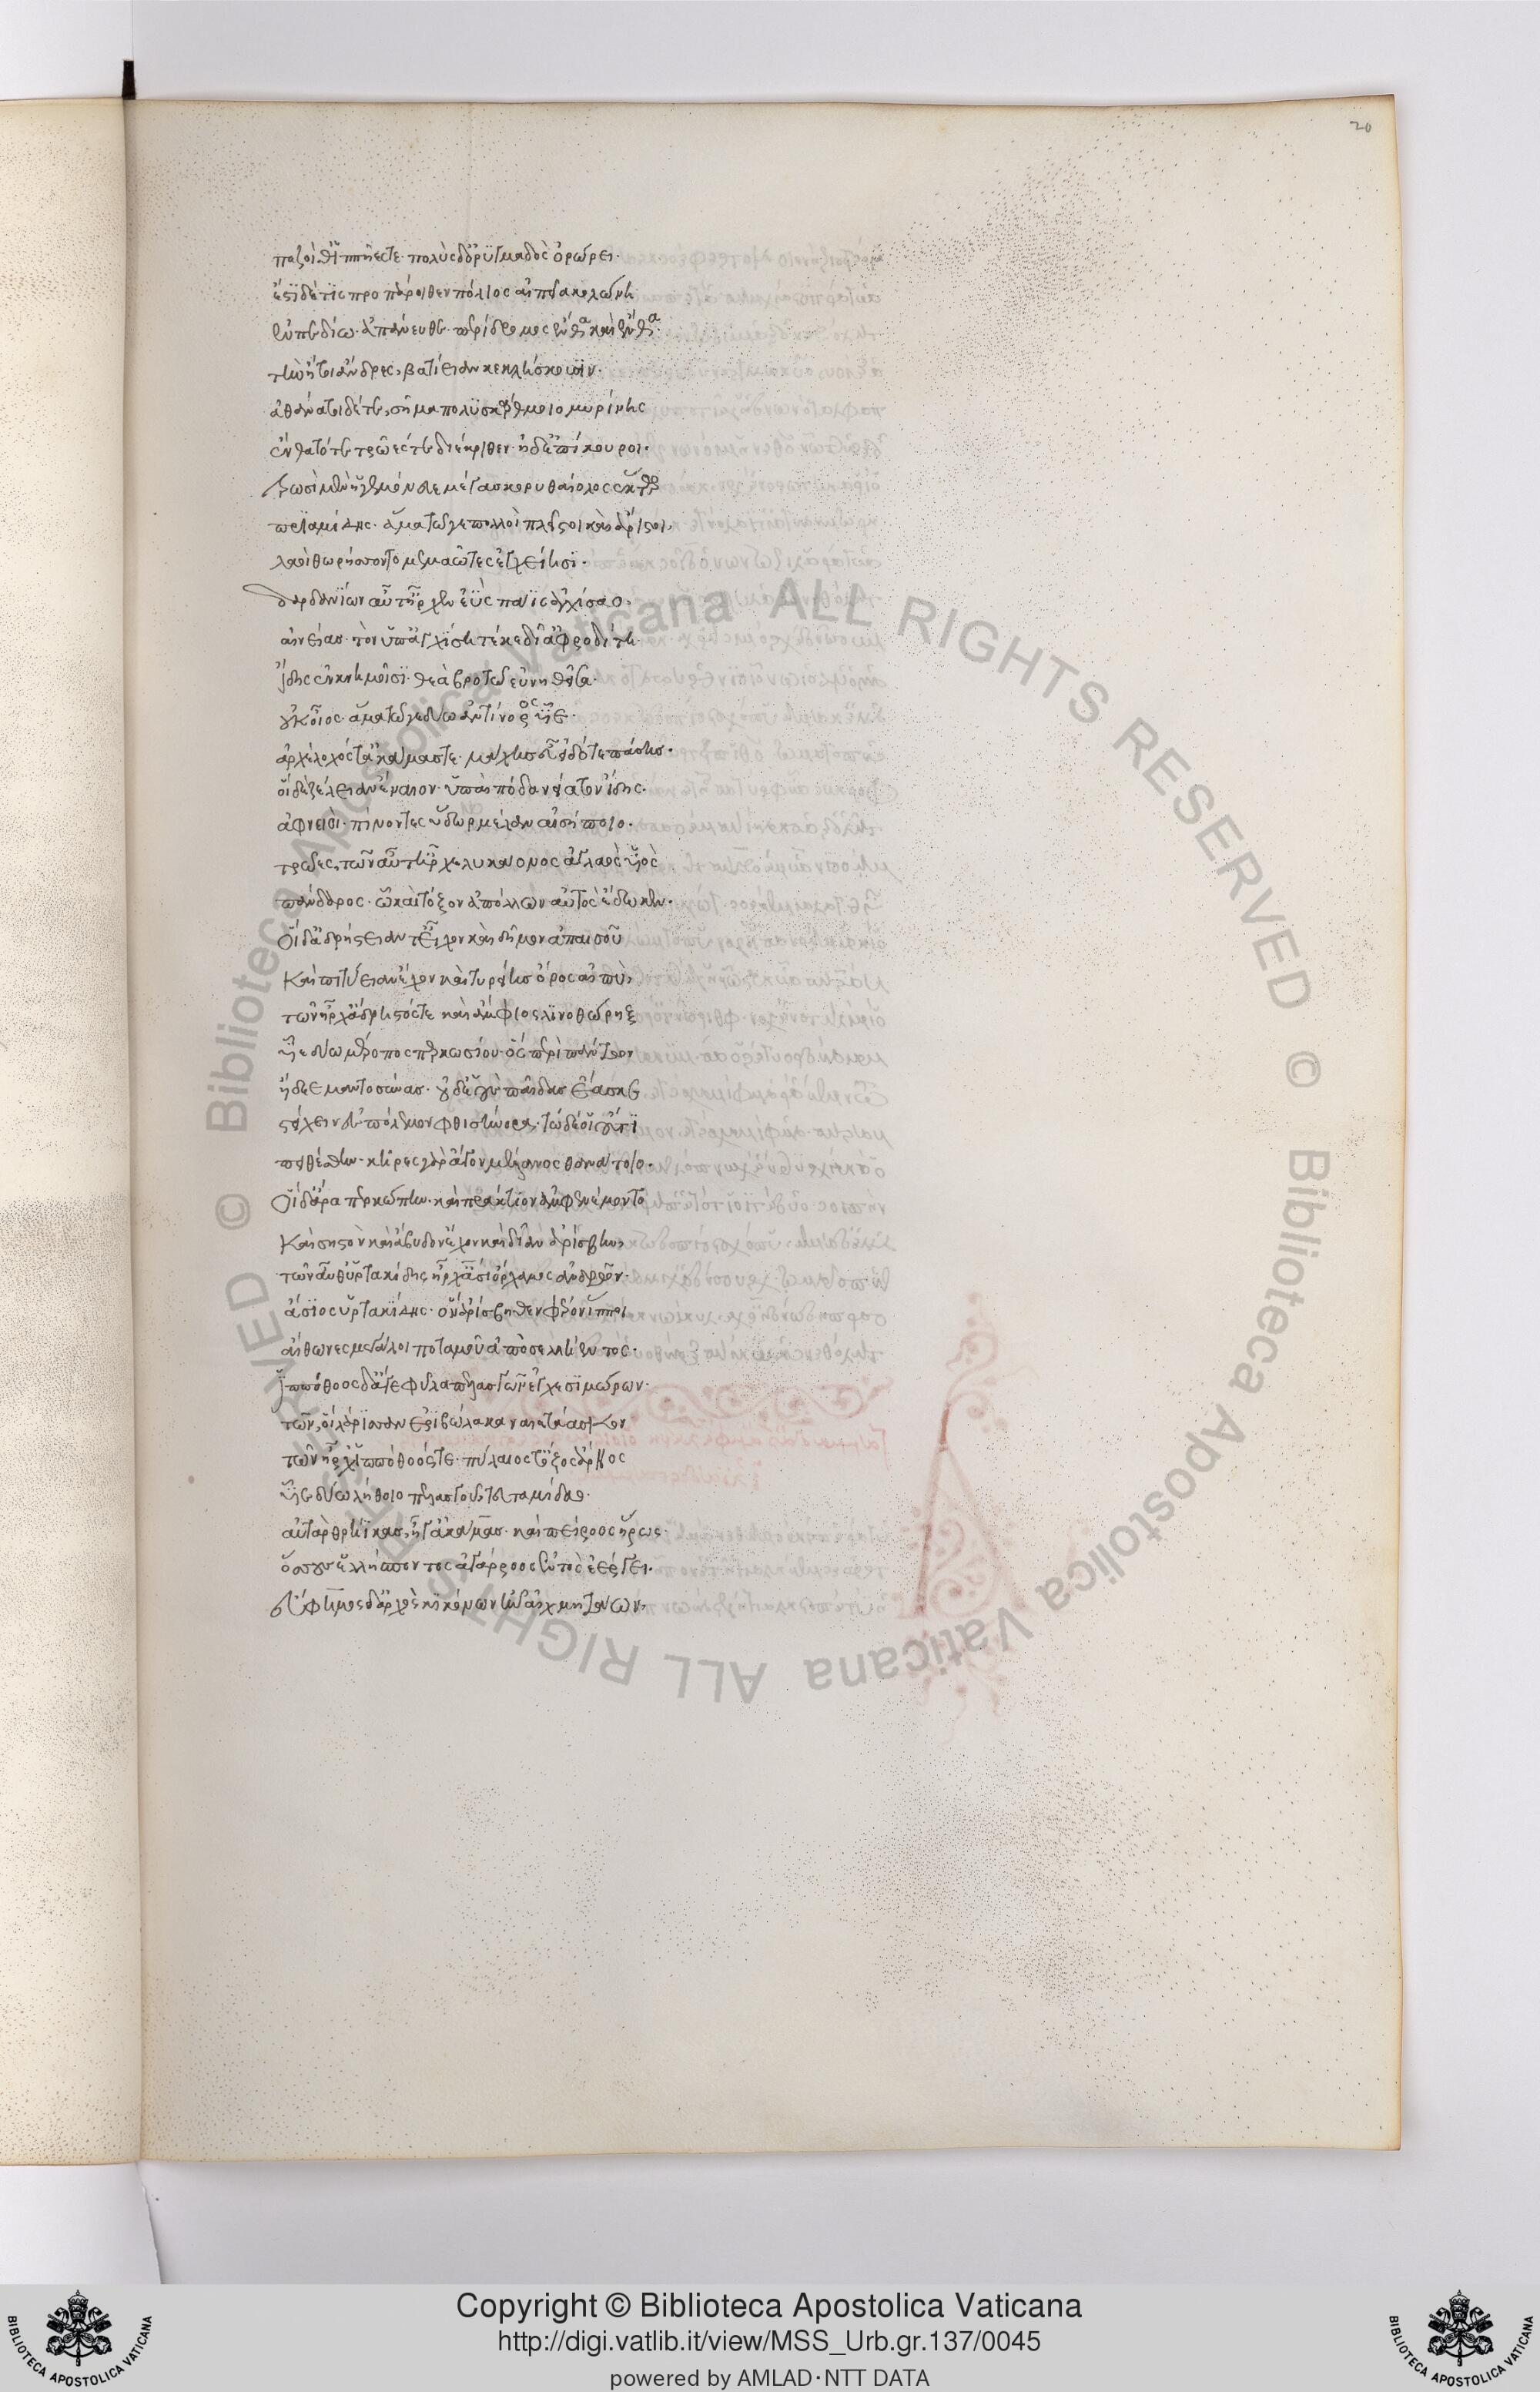 20
πεζοί θ' ἱππῆές τε· πολὺς δ' ὀρυμαγδὸς ὀρώρει·
ἔστι δέ τις προπάροιθεν πόλιος αἰπεῖα κολώνη
ἐν πεδίω· ἀπάνευθε· περίδρομος ἔνθα καὶ ἔνθα·
τὴν ἤτοι ἄνδρες, βατίειαν κικλήσκουσιν·
ἀθάνατοι δέ τε, σῆμα πολυσκάρθμοιο μυρίνης
ἔνθα τότε τρῶές τε διέκριθεν· ἠδ' ἐπίκουροι·
Τρωσὶ μὲν ἡγεμόνευε μέγας κορυθαίολος ἕκτωρ
πριαμίδης· ἅμα τῶγε πολλοὶ πλεῖστοι καὶ ἄριστοι,
λαοὶ θωρήσσοντο μεμαῶτες ἐγχείησι·
δαρδανίων αὖτ' ἦρχεν ἐῢς παῖς ἀγχίσαο,
αἰνείας· τὸν ὑπ' ἀγχίση τέκε δῖ' ἀφροδίτη·
ἴδης ἐν κνημοῖσι· θεὰ βροτῶ εὐνηθεῖσα·
οὐκ οἶος· ἅμα τῶγε δύω ἀντήνορος υἷε·
ἀρχέλοχός τ' ἀκάμας τε· μάχης εὖ εἰδότε πάσης·
οἳ δὲ ζέλειαν ἔναιον· ὑπαὶ πόδα νείατον ἴδης·
ἀφνειοὶ· πίνοντες ὕδωρ μέλαν αἰσήποιο·
τρῶες, τῶν αὖτ' ἦρχε λυκάονος ἀγλαὸς υἱὸς
πάνδαρος· ὧ καὶ τόξον ἀπόλλων αὐτὸς ἔδωκεν·
Οἳ δ' ἀδρήστειάν τ' εἶχον καὶ δῆμον ἀπαισοῦ
Καὶ πιτύειαν ἔχον καὶ τηρείης ὄρος αἰπὺ,
τῶν ἦρχ' ἄδρηστός τε καὶ ἄμφιος λινοθώρηξ
υἷε δύω μέροπος περκωσίου· ὃς περὶ πάντων
ἤδεε μαντοσύνας· οὐδὲ οὓς παῖδας ἔασκε
στείχειν ἐς πόλεμον φθισήνορα· τὼ δέ οἱ οὔτι
πειθέσθην· κῆρες γὰρ ἄγον μέλανος θανάτοιο·
Οἳ δ' ἄρα περκώτην· καὶ πράκτιον ἀμφενέμοντο
Καὶ σηστὸν καὶ ἄβυδον ἔχον καὶ δῖαν ἀρίσβην,
τῶν αὖθ' ὑρτακίδης ἦρχ' ἄσιος ὄρχαμος ἀνδρῶν·
ἄσιος ὑρτακίδης· ὃν ἀρίσβηθεν φέρον ἵπποι
αἴθωνες μεγάλοι ποταμοῦ ἀπὸ σελλήεντος·
Ἱππόθοος δ' ἄγε φῦλα πελασγῶν ἐγχεσιμώρων·
τῶν, οἳ λάρισσαν ἐριβώλακα ναιετάασκον
τῶν ἦρχ' ἱππόθοός τε· πύλαιός τ' ὄζος ἄρηος
υἷε δύω λήθοιο πελασγοῦ τευταμίδαο·
αὐτὰρ θρήϊκας, ἦγ' ἀκάμας· καὶ πείροος ἥρως·
ὅσσους ἑλλήσποντος ἀγάρροος ἐντὸς ἐέργει·
εὔφημος δ' ἀρχὸς κικόνων ἦν αἰχμητάων,
Copyright © Biblioteca Apostolica Vaticana
http://digi.vatlib.it/view/MSS_Urb.gr.137/0045
powered by AMLAD·NTT DATA